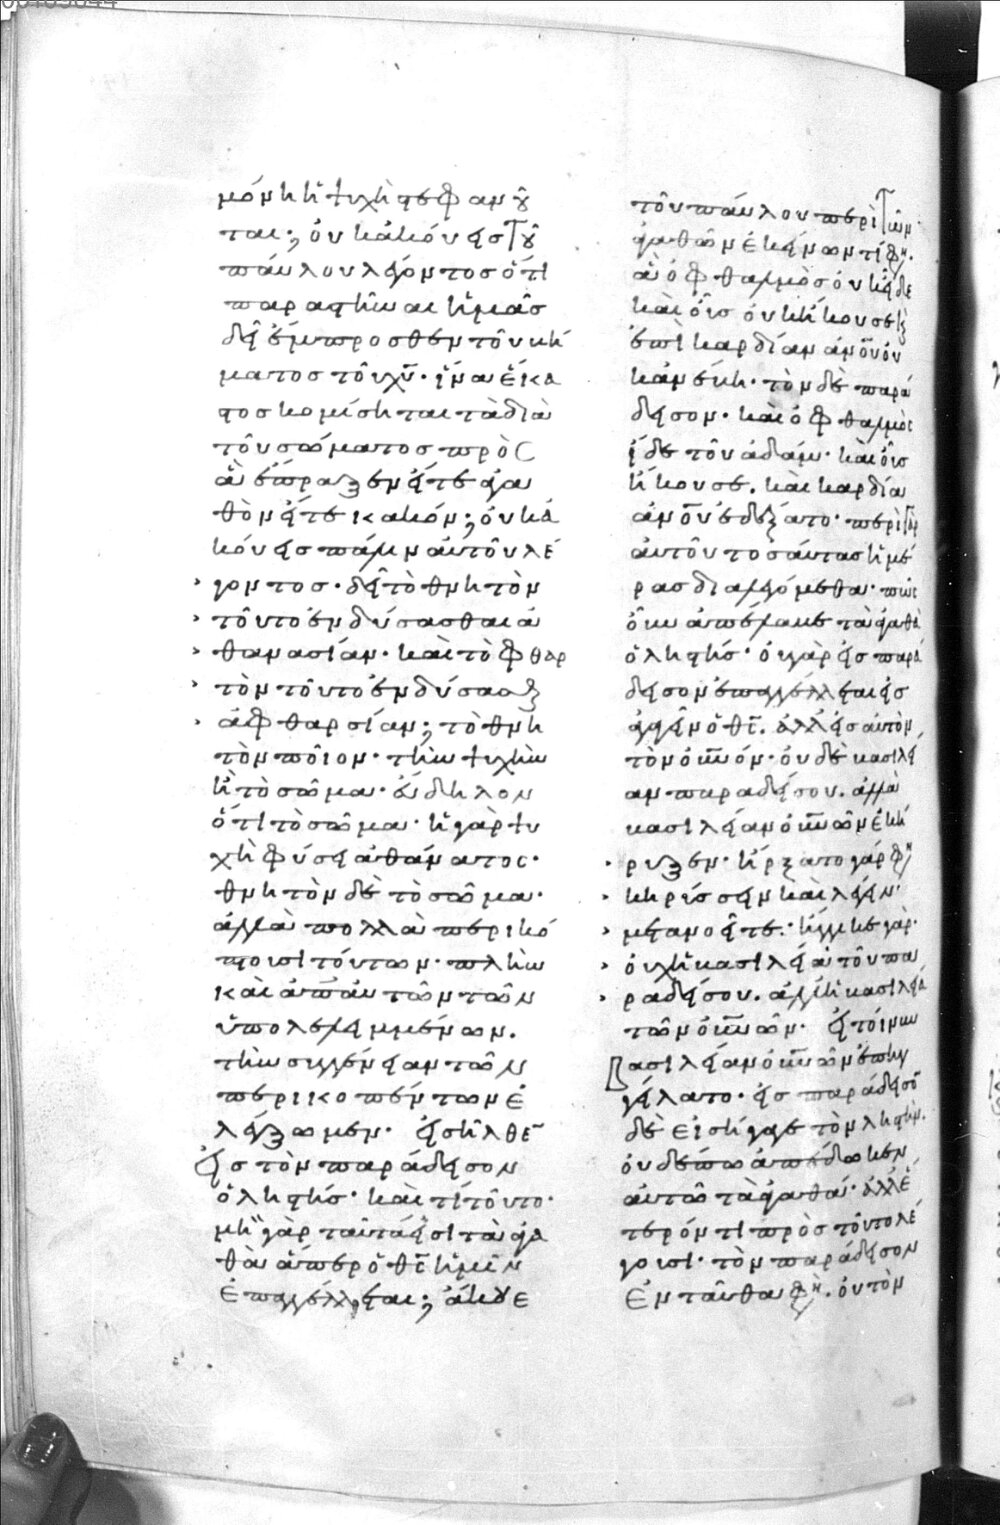 μόνη ἡ ψυχὴ στεφανοῦ
ται; οὐκ ἀκούεις τοῦ
παύλου λέγοντος ὅτι
παραστῆναι ἡμᾶς
δεῖ ἔμπροσθεν τοῦ βή
ματος τοῦ χῦ· ἵνα ἕκα
στος κομίσηται τὰ διὰ
τοῦ σώματος πρὸς
ἃ ἔπραξεν εἴτε ἀγα
θὸν εἴτε κακόν; οὐκ ἀ
κούεις πάλιν αὐτοῦ λέ
γοντος· δεῖ τὸ θνητὸν
τοῦτο ἐνδύσασθαι ἀ
θανασίαν· καὶ τὸ φθαρ
τὸν τοῦτο ἐνδύσασθαι
ἀφθαρσίαν; τὸ θνη
τὸν ποῖον· τὴν ψυχὴν
ἢ τὸ σῶμα· εὔδηλον
ὅτι τὸ σῶμα· ἡ γὰρ ψυ
χὴ φύσει ἀθάνατος·
θνητὸν δὲ τὸ σῶμα·
ἀλλὰ πολλὰ περικό
πτουσι τούτων· πλὴν
καὶ ἀπὸ πάντων τῶν
ὑπολελειμμένων.
τὴν συγγένειαν τῶν
περικοπέντων ἐ
λέγξωμεν· εἰσῆλθεν
εἰς τὸν παράδεισον
ὁ λῃστής· καὶ τί τοῦτο·
μὴ γὰρ ταῦτά εἰσι τὰ ἀγα
θὰ ἅπερ ὁ θς ἡμῖν
ἐπαγγέλλεται; ἄκουε
τοῦ παύλου περὶ τῶν
ἀγαθῶν ἐκείνων τί φη·
ἃ ὀφθαλμὸς οὐκ εἶδε
καὶ οὖς οὐκ ἤκουσε καὶ
ἐπὶ καρδίαν ἀνου οὐ
κ ἀνέβη· τὸν δὲ παρά
δεισον· καὶ ὀφθαλμὸς
ἶδε τοῦ ἀδάμ· καὶ οὖς
ἤκουσε. καὶ καρδία
ἀνου ἐδέξατο· περὶ γὰρ
αὐτοῦ τοσαύτας ἡμέ
ρας διαλεγόμεθα· πῶς
οὖν ἀπέλαβε τὰ ἀγαθὰ
ὁ λῃστής· οὐ γὰρ εἰς παρά
δεισον ἐπαγγέλλεται εἰσ
αγαγεῖν ὁ θς. ἀλλ' εἰς αὐτὸν
τὸν οὐνόν· οὐδὲ βασιλεί
αν παραδείσου. ἀλλὰ
βασιλείαν οὐνῶν ἐκή
ρυξεν· ἤρξατο γάρ φη
κηρύσσειν καὶ λέγειν·
μετανοεῖτε· ἤγγικε γὰρ·
οὐχ ἡ βασιλεία τοῦ πα
ραδείσου. ἀλλ' ἡ βασιλεία
τῶν οὐνῶν· εἰ τοίνυν
βασιλείαν οὐνῶν ἐπηγ
γείλατο· εἰς παράδεισον
δὲ εἰσήγαγε τὸν λῃστήν.
οὐδέπω ἀπέδωκεν
αὐτῶ τὰ ἀγαθά· ἀλλ' ἕ
τερόν τι πρὸς τοῦτο λέ
γουσι· τὸν παράδεισον
ἐνταῦθα φη. οὐ τὸν